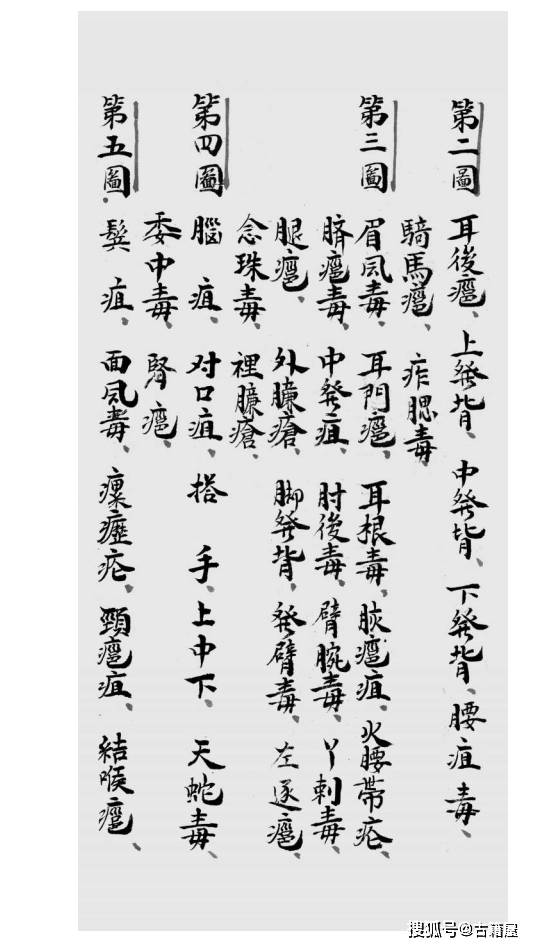 第二圖 耳後癰、上發背、中發背、下發背、腰疽毒、
騎馬癰、痄腮毒
第三圖 眉風毒、耳門癰、耳根毒、肷癰疽、火腰帶疮、
臍癰毒、中發疽、肘後毒、臂腕毒、丫刺毒、
腿癰、外臁瘡、脚發背、發臂毒、左逐癰、
念珠毒、裡臁瘡、
第四圖 腦疽、对口疽、搭手、上中下、天蛇毒、
委中毒、腎癰、
第五圖 鬓疽、面風毒、瘰癧疮、頸癰疽、結喉癰、
搜狐号@古籍屋